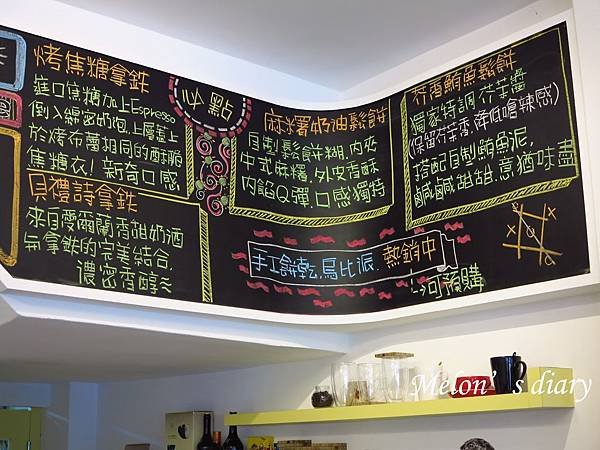 烤焦糖拿鉄
進口焦糖加上Espresso
倒入綿密奶泡,上層蓋上
於烤布蕾相同的酥脆
焦糖衣!新奇口感
貝禮詩拿鉄
來自愛爾蘭香甜奶酒
與拿鉄的完美結合,
濃密香醇
必點
麻糬奶油鬆餅
自製鬆餅糊,內夾
中式麻糬,外皮香酥
內餡Q彈,口感獨特
芥香鮪魚鬆餅
獨家特調芥茉醬
(保留芥茉香,降低嗆辣感)
搭配自製鮪魚泥,
鹹鹹甜甜,意猶味盡
手工餅乾,烏比派,熱銷中
→可預購
Melon's diary